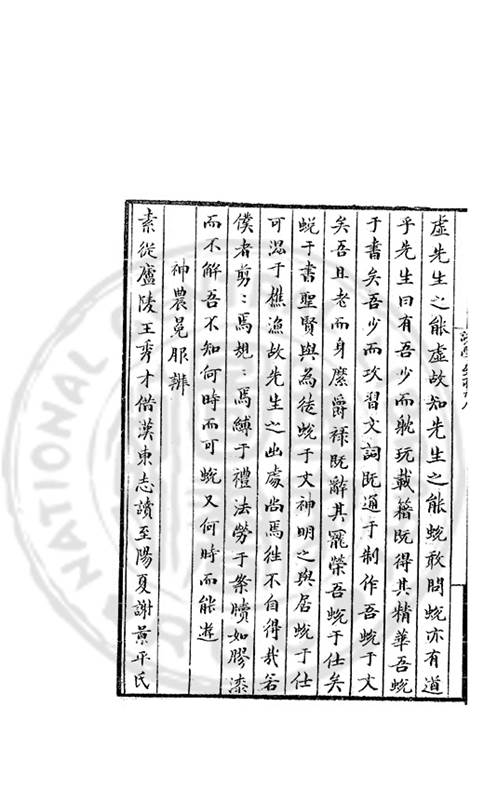 虛先生之能虛故知先生之能蛻敢問蛻亦有道
乎先生曰有吾少而躭玩載籍既得其精華吾蛻
于書矣吾少而攻習文詞既通于制作吾蛻于文
矣吾且老而身縻爵祿既辭其寵榮吾蛻于仕矣
蛻于書聖賢與為徒蛻于文神明之與居蛻于仕
可混于樵漁故先生之出處尚焉往不自得哉若
僕者剪:焉規:焉縛于禮法勞于案牘如膠漆
而不解吾不知何時而可蛻又何時而能遊
神農冕服辨
素從廬陵王秀才借漢東志讀至陽夏謝景平氏
NATIONAL CENTRAL